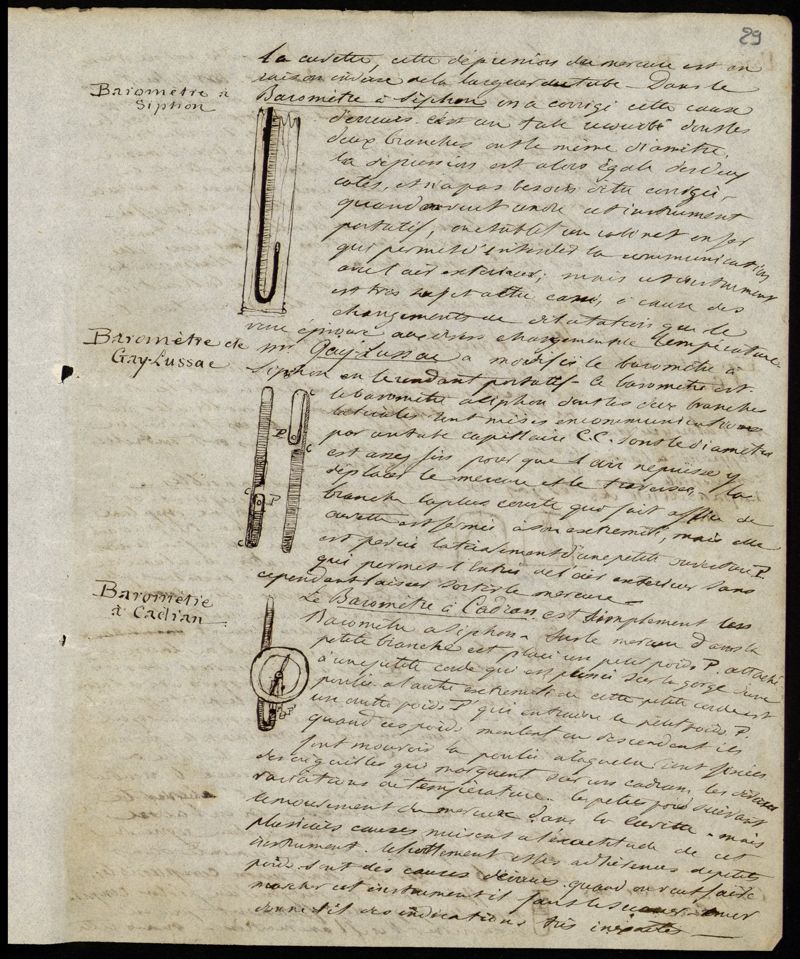 29
la cuvette, cette dépression du mercure est en
raison inverse de la largeur du tube - Dans le
Baromètre à
Siphon
Baromètre à Siphon on a corrigé cette cause
d'erreurs c'est un tube recourbé dont les
deux branches ont le même diamètre.
la dépression est alors égale des deux
cotés, et n'a pas besoin d'être corrigée,
quand on veut rendre cet instrument
portatif, on établit un robinet en fer
qui permet d'intercepter la communication
avec l'air exterieur; mais cet instrument
est très sujet à être cassé, à cause des
changements de dilatation que le
verre éprouve aux divers changements de température
Baromètre de
Gay-Lussac
Mr. Gay-Lussac a modifié le baromètre à
Siphon en le rendant portatif - le baromètre est
le baromètre à siphon dont les deux branches
latérales sont mises en communication
par un tube capillaire C.C. dont le diamètre
est assez fin pour que l'air ne puisse y
déplacer le mercure et le traverser, - la
branche la plus courte qui fait office de
cuvette est fermée à son extremité, mais elle
est percée latéralement d'une petite ouverture P.
qui permet l'entrée de l'air exterieur sans
cependant laisser sortir le mercure -
C
P
C
C
P
C
Baromètre
à Cadran
Le Baromètre à Cadran est simplement un
Baromètre à siphon. Sur le mercure dans la
petite branche est placé un petit poids P. attaché
à une petite corde qui est passée sur la gorge d'une
poulie à l'autre extremité de cette petite corde est
un autre poids P' qui
le petit poids P.
quand ces poids montent ou descendent ils
P
P'
font mouvoir la poulie à laquelle sont fixées
des aiguilles qui marquent sur un cadran les
variations de température. les petits poids suivent
le mouvement du mercure dans la cuvette - mais
plusieurs causes nuisent à l'exactitude de cet
instrument. le frottement et les adhérences du petit
poids sont des causes d'erreurs quand on veut faire
marcher cet instrument il faut le
donne-t-il des indications très inexactes